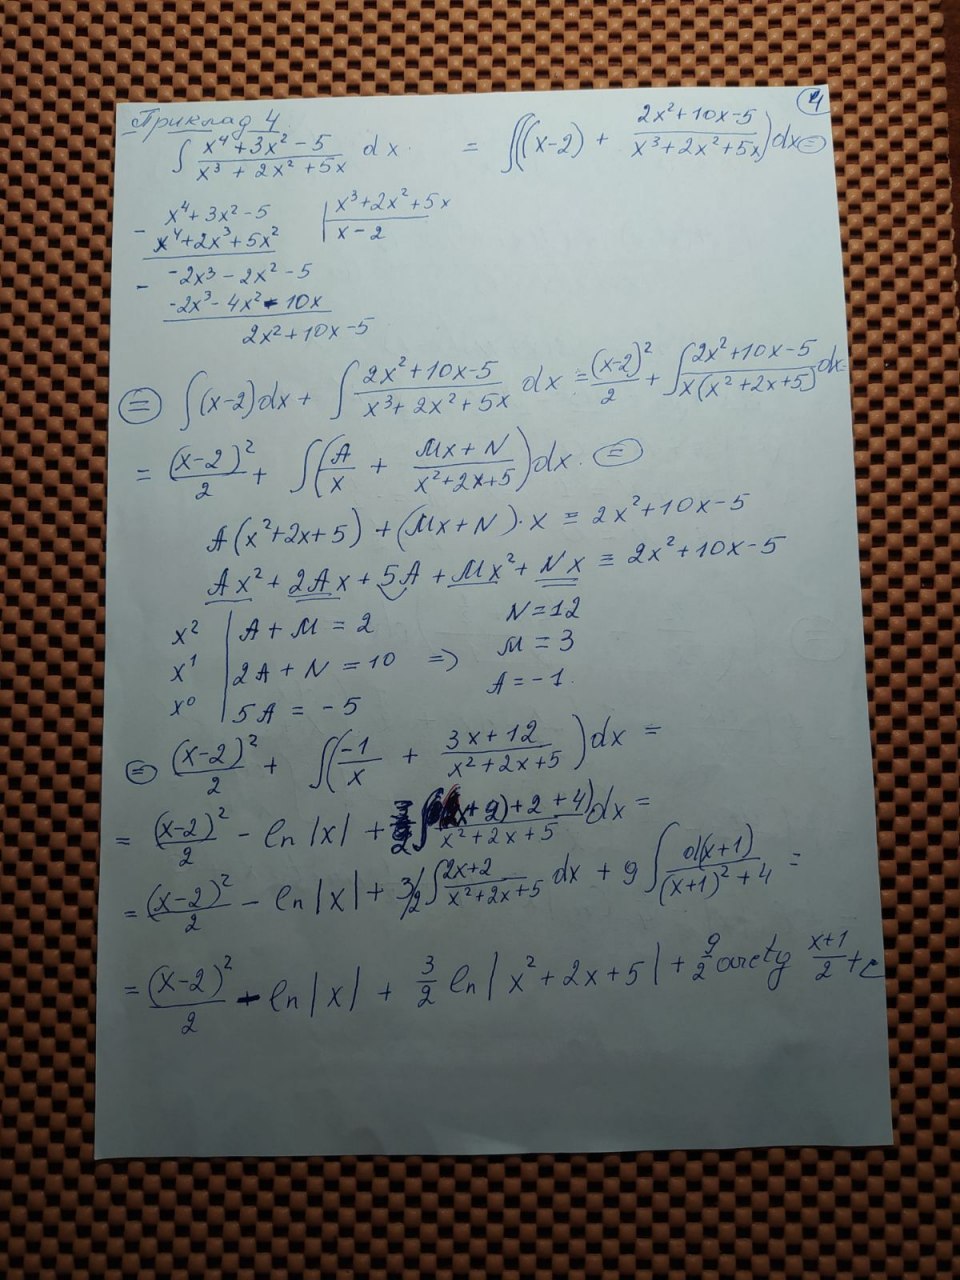 4
Приклад 4
∫ (x⁴ + 3x² - 5)/(x³ + 2x² + 5x) dx = ∫((x-2) + (2x² + 10x - 5)/(x³ + 2x² + 5x))dx =
- x⁴ + 3x² - 5 | x³ + 2x² + 5x
x⁴ + 2x³ + 5x² | x - 2
- -2x³ - 2x² - 5
-2x³ - 4x² - 10x
2x² + 10x - 5
= ∫(x-2)dx + ∫ (2x² + 10x - 5)/(x³ + 2x² + 5x) dx = (x-2)²/2 + ∫ (2x² + 10x - 5)/(x(x² + 2x + 5)) dx =
= (x-2)²/2 + ∫(A/x + (Mx + N)/(x² + 2x + 5))dx. =
A(x² + 2x + 5) + (Mx + N)·x ≡ 2x² + 10x - 5
Ax² + 2Ax + 5A + Mx² + Nx ≡ 2x² + 10x - 5
x² | A + M = 2 N = 12
x¹ | 2A + N = 10 => M = 3
x⁰ | 5A = -5 A = -1.
= (x-2)²/2 + ∫(-1/x + (3x + 12)/(x² + 2x + 5))dx =
= (x-2)²/2 - ln|x| + 3/2 ∫ + 2) + 2 + 4)/(x² + 2x + 5) dx =
= (x-2)²/2 - ln|x| + 3/2 ∫ (2x + 2)/(x² + 2x + 5) dx + 9 ∫ d(x+1)/((x+1)² + 4) =
= (x-2)²/2 - ln|x| + 3/2 ln|x² + 2x + 5| + 9/2 arctg (x+1)/2 + c